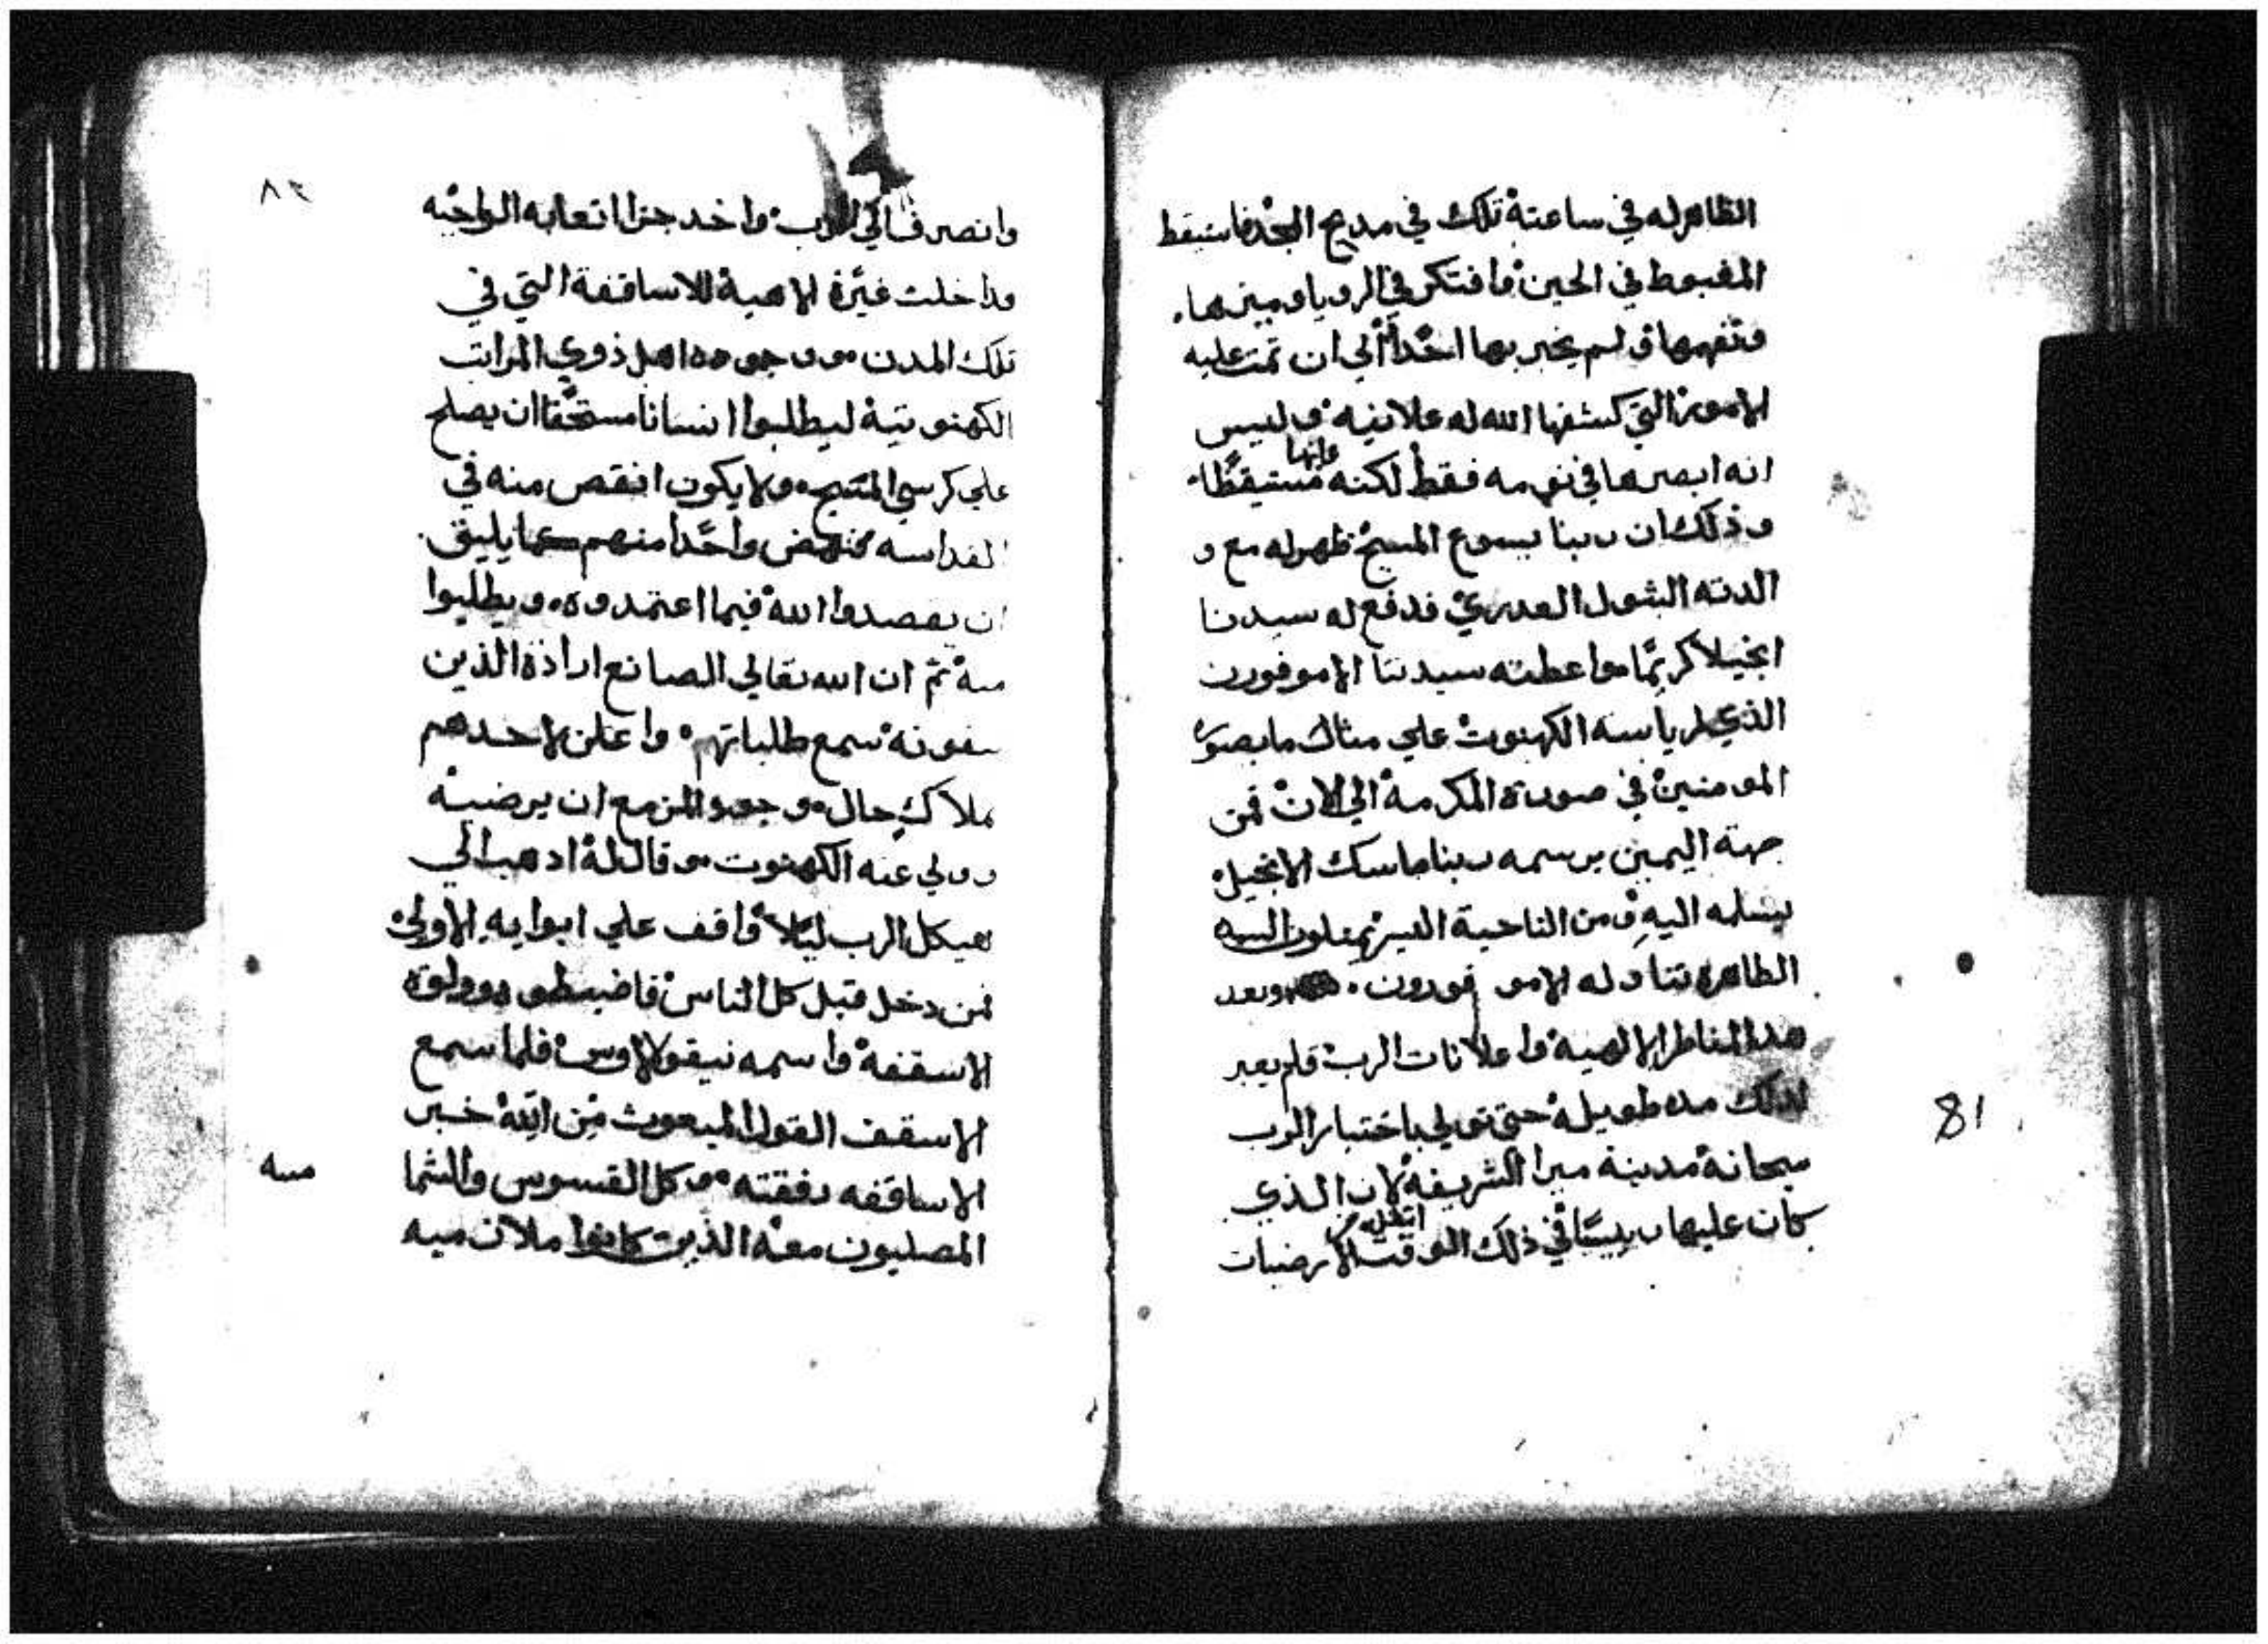 الظاهر له في ساعته تلك في مديح المجد فاستيقظ
المغبوط في الحين وافتكر في الرويا وميزها.
وتفهمها ولم يخبر بها احدا الي ان تمت عليه
الامور التي كشفها الله له علانيه وليس
انه ابصرها في نومه فقط لكنه وانها مستيقظا
وذلك ان ربنا يسوع المسيح ظهر له مع و
الدته البتول العدري فدفع له سيدنا
انجيلا كريما واعطته سيدتنا الاموفورن
الذي لرياسه الكهنوت علي مثال ما يصور
المومنين في صورته المكرمه الي الان فمن
جهة اليمين يرسمه ربنا ماسك الانجيل
يسلمه اليه ومن الناحية اليسري يمثلون السيده
الطاهره تناوله الامو فورون . وبعد
هدا المناظر الالهيه واعلانات الرب فلم يعبر
لدلك مده طويله حتي تولي باختيار الرب
سبحانه مدينة ميرا الشريفه لان الذي
كان عليها رييسا في ذلك الوقت انتقل من الارضيات
81
٨٢
وانصرف الي الرب واخد جزا اتعابه الواجبه
وداخلت غيرة الاهية للاساقفة التي في
تلك المدن ووجوه اهل ذوي المراتب
الكهنوتية ليطلبوا انسانا مستحقا ان يصلح
علي كرسي المتنيح ولا يكون انقص منه في
القداسه فنهض واحدا منهم كما يليق
ان يقصدوا الله فيما اعتمدوه ويطلبوا
منه ثم ان الله تعالي الصانع ارادة الذين
يتقونه سمع طلباتهم واعلن لاحدهم
ملاك حال وجود المزمع ان يرضيه
وولي عنه الكهنوت وقال له ادهب الي
هيكل الرب ليلا واقف علي ابوابه الاولي
فمن دخل قبل كل الناس فاضبطوه وولوه
الاسقفه واسمه نيقولاوس فلما سمع
الاسقف القول المبعوث من الله خبر
الاساقفه رفقته وكل القسوس والشما
مسه
المصليون معه الذين كانوا ملان ميه